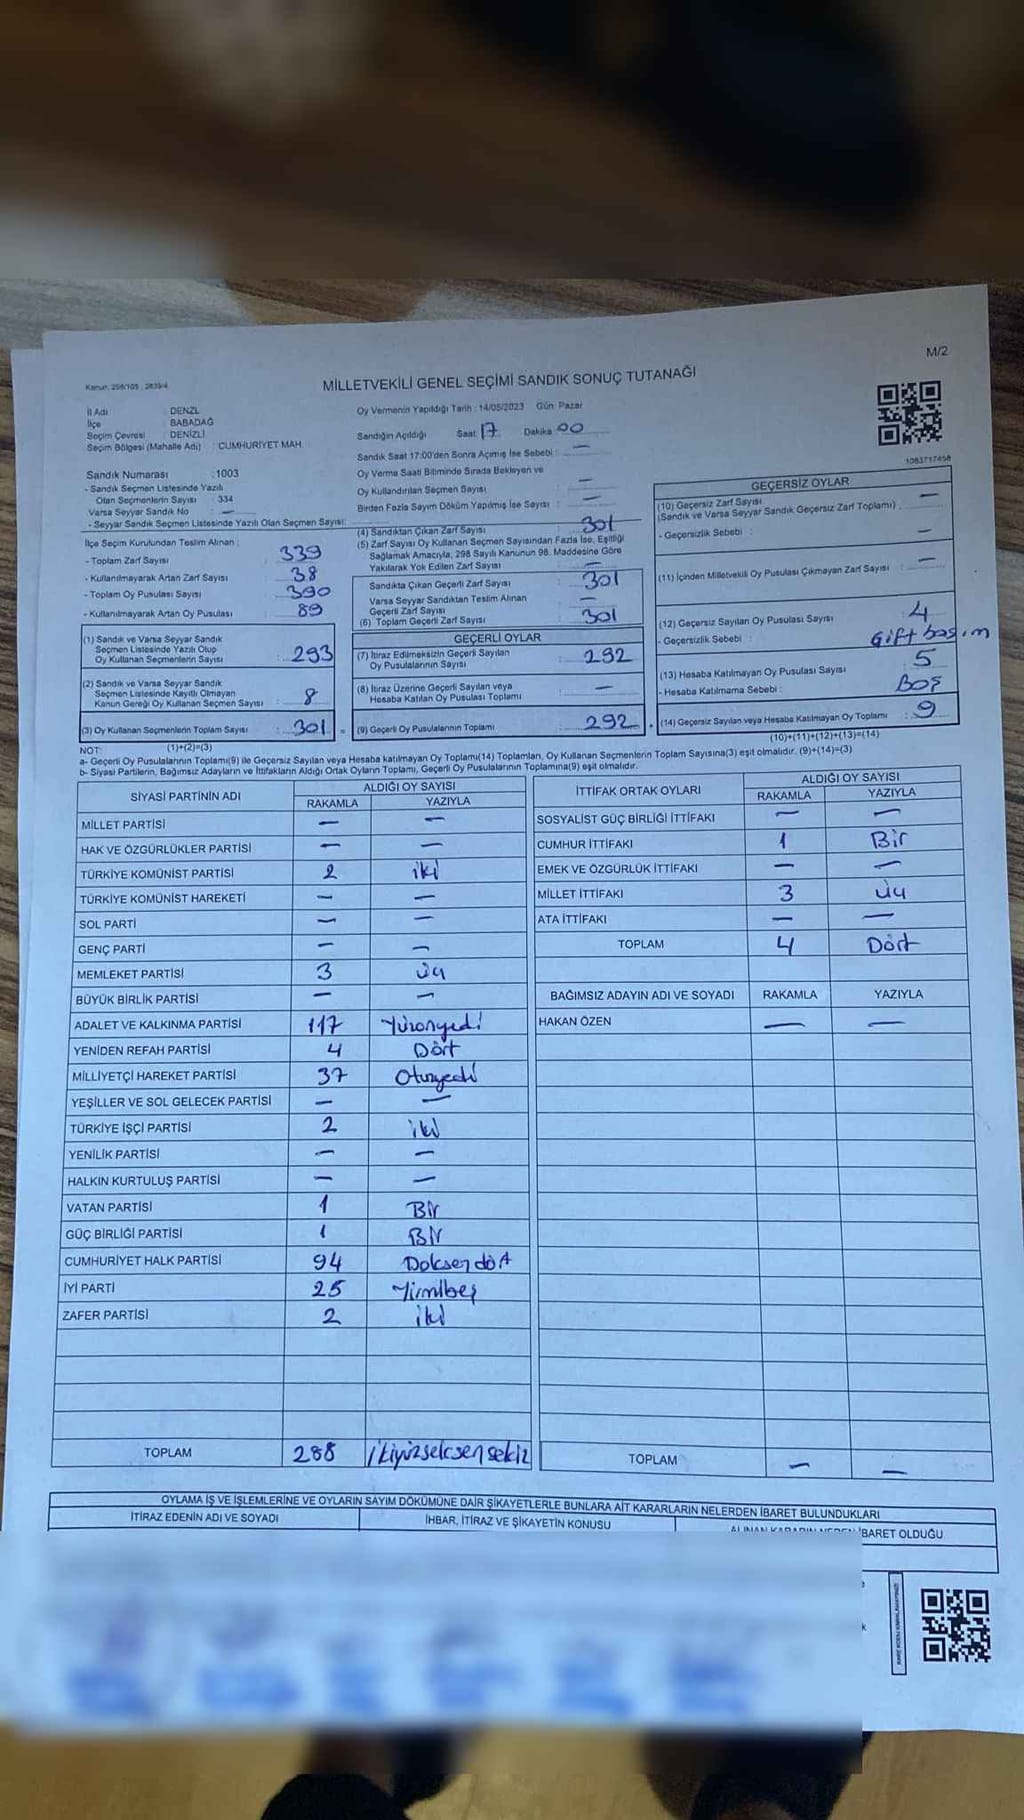 M/2
Kanun: 298/105 , 2839/4
MİLLETVEKİLİ GENEL SEÇİMİ SANDIK SONUÇ TUTANAĞI
İl Adı : DENZL
İlçe : BABADAĞ
Seçim Çevresi : DENİZLİ
Seçim Bölgesi (Mahalle Adı) : CUMHURİYET MAH.
Oy Vermenin Yapıldığı Tarih : 14/05/2023 Gün: Pazar
Sandığın Açıldığı Saat: 17 Dakika 00
Sandık Saat 17:00'den Sonra Açılmış İse Sebebi : —
Oy Verme Saati Bitiminde Sırada Bekleyen ve
Oy Kullandırılan Seçmen Sayısı : —
Birden Fazla Sayım Döküm Yapılmış İse Sayısı : —
1083717458
Sandık Numarası : 1003
- Sandık Seçmen Listesinde Yazılı
Olan Seçmenlerin Sayısı : 334
Varsa Seyyar Sandık No : —
- Seyyar Sandık Seçmen Listesinde Yazılı Olan Seçmen Sayısı:
İlçe Seçim Kurulundan Teslim Alınan :
- Toplam Zarf Sayısı : 339
- Kullanılmayarak Artan Zarf Sayısı : 38
- Toplam Oy Pusulası Sayısı : 390
- Kullanılmayarak Artan Oy Pusulası : 89
(1) Sandık ve Varsa Seyyar Sandık
Seçmen Listesinde Yazılı Olup
Oy Kullanan Seçmenlerin Sayısı : 293
(2) Sandık ve Varsa Seyyar Sandık
Seçmen Listesinde Kayıtlı Olmayan
Kanun Gereği Oy Kullanan Seçmen Sayısı : 8
(3) Oy Kullanan Seçmenlerin Toplam Sayısı : 301 =
(1)+(2)=(3)
(4) Sandıktan Çıkan Zarf Sayısı : 301
(5) Zarf Sayısı Oy Kullanan Seçmen Sayısından Fazla İse, Eşitliği
Sağlamak Amacıyla, 298 Sayılı Kanunun 98. Maddesine Göre
Yakılarak Yok Edilen Zarf Sayısı : —
Sandıkta Çıkan Geçerli Zarf Sayısı : 301
Varsa Seyyar Sandıktan Teslim Alınan
Geçerli Zarf Sayısı : —
(6) Toplam Geçerli Zarf Sayısı : 301
GEÇERLİ OYLAR
(7) İtiraz Edilmeksizin Geçerli Sayılan
Oy Pusulalarının Sayısı : 292
(8) İtiraz Üzerine Geçerli Sayılan veya
Hesaba Katılan Oy Pusulası Toplamı : —
(9) Geçerli Oy Pusulalarının Toplamı : 292
GEÇERSİZ OYLAR
(10) Geçersiz Zarf Sayısı
(Sandık ve Varsa Seyyar Sandık Geçersiz Zarf Toplamı) : —
- Geçersizlik Sebebi : —
(11) İçinden Milletvekili Oy Pusulası Çıkmayan Zarf Sayısı : —
(12) Geçersiz Sayılan Oy Pusulası Sayısı : 4
- Geçersizlik Sebebi : Çift basım
(13) Hesaba Katılmayan Oy Pusulası Sayısı : 5
- Hesaba Katılmama Sebebi : BOŞ
(14) Geçersiz Sayılan veya Hesaba Katılmayan Oy Toplamı : 9
(10)+(11)+(12)+(13)=(14)
NOT:
a- Geçerli Oy Pusulalarının Toplamı(9) ile Geçersiz Sayılan veya Hesaba katılmayan Oy Toplamı(14) Toplamları, Oy Kullanan Seçmenlerin Toplam Sayısına(3) eşit olmalıdır. (9)+(14)=(3)
b- Siyasi Partilerin, Bağımsız Adayların ve İttifakların Aldığı Ortak Oyların Toplamı, Geçerli Oy Pusulalarının Toplamına(9) eşit olmalıdır.
SİYASİ PARTİNİN ADI ALDIĞI OY SAYISI
RAKAMLA YAZIYLA
MİLLET PARTİSİ — —
HAK VE ÖZGÜRLÜKLER PARTİSİ — —
TÜRKİYE KOMÜNİST PARTİSİ 2 iki
TÜRKİYE KOMÜNİST HAREKETİ — —
SOL PARTİ — —
GENÇ PARTİ — —
MEMLEKET PARTİSİ 3 üç
BÜYÜK BİRLİK PARTİSİ — —
ADALET VE KALKINMA PARTİSİ 117 Yüzonyedi
YENİDEN REFAH PARTİSİ 4 Dört
MİLLİYETÇİ HAREKET PARTİSİ 37 Otuzyedi
YEŞİLLER VE SOL GELECEK PARTİSİ — —
TÜRKİYE İŞÇİ PARTİSİ 2 iki
YENİLİK PARTİSİ — —
HALKIN KURTULUŞ PARTİSİ — —
VATAN PARTİSİ 1 Bir
GÜÇ BİRLİĞİ PARTİSİ 1 Bir
CUMHURİYET HALK PARTİSİ 94 Doksendört
İYİ PARTİ 25 Yirmibeş
ZAFER PARTİSİ 2 iki
TOPLAM 288 ikiyüzseksensekiz
İTTİFAK ORTAK OYLARI ALDIĞI OY SAYISI
RAKAMLA YAZIYLA
SOSYALİST GÜÇ BİRLİĞİ İTTİFAKI — —
CUMHUR İTTİFAKI 1 Bir
EMEK VE ÖZGÜRLÜK İTTİFAKI — —
MİLLET İTTİFAKI 3 üç
ATA İTTİFAKI — —
TOPLAM 4 Dört
BAĞIMSIZ ADAYIN ADI VE SOYADI RAKAMLA YAZIYLA
HAKAN ÖZEN — —
TOPLAM — —
OYLAMA İŞ VE İŞLEMLERİNE VE OYLARIN SAYIM DÖKÜMÜNE DAİR ŞİKAYETLERLE BUNLARA AİT KARARLARIN NELERDEN İBARET BULUNDUKLARI
İTİRAZ EDENİN ADI VE SOYADI İHBAR, İTİRAZ VE ŞİKAYETİN KONUSU ALINAN KARARIN NEDEN İBARET OLDUĞU